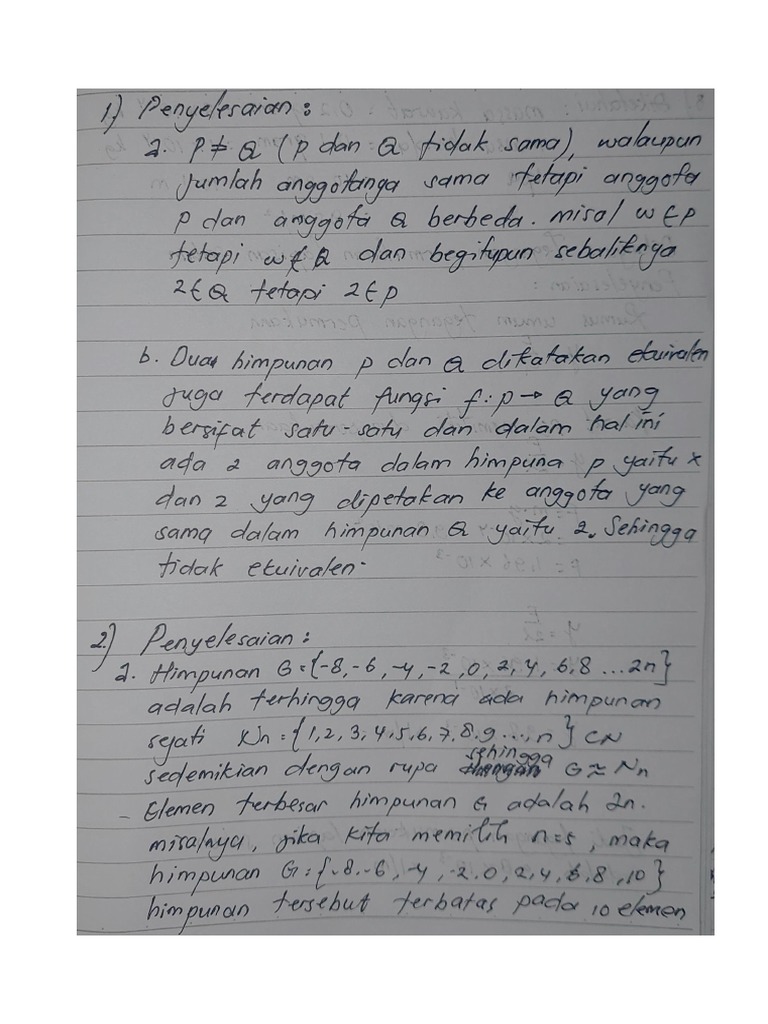 1.) Penyelesaian :
a. P ≠ Q (P dan Q tidak sama), walaupun
jumlah anggotanga sama tetapi anggota
P dan anggota Q berbeda. misal w ∈ P
tetapi w ∉ Q dan begitupun sebaliknya
2 ∈ Q tetapi 2 ∈ P
b. Dua himpunan P dan Q dikatakan ekuivalen
juga terdapat fungsi f : P → Q yang
bersifat satu-satu dan dalam hal ini
ada 2 anggota dalam himpuna P yaitu x
dan 2 yang dipetakan ke anggota yang
sama dalam himpunan Q yaitu 2. Sehingga
tidak ekuivalen.
2.) Penyelesaian :
a. Himpunan G = {-8, -6, -4, -2, 0, 2, 4, 6, 8 ... 2n}
adalah terhingga karena ada himpunan
sejati Nn = {1, 2, 3, 4, 5, 6, 7, 8, 9 ..., n} ⊂ N
sedemikian dengan rupa sehingga G ≈ Nn
- Elemen terbesar himpunan G adalah 2n.
misalnya, jika kita memilih n=5, maka
himpunan G = {-8, -6, -4, -2, 0, 2, 4, 6, 8, 10}
himpunan tersebut terbatas pada 10 elemen